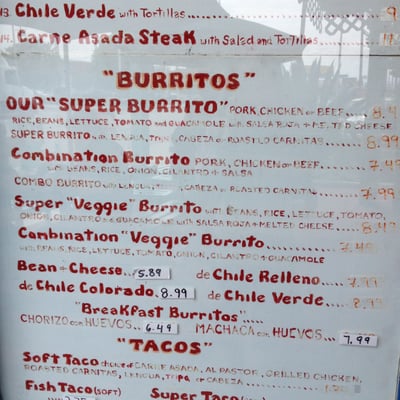 13. Chile Verde with Tortillas
14. Carne Asada Steak with Salad and Tortillas
"BURRITOS"
OUR "SUPER BURRITO" PORK, CHICKEN or BEEF
RICE, BEANS, LETTUCE, TOMATO and GUACAMOLE with SALSA ROJA + MELTED CHEESE
SUPER BURRITO with LENGUA, CABEZA or ROASTED CARNITAS 8.99
Combination Burrito PORK, CHICKEN or BEEF. 7.49
with BEANS, RICE, ONION, CILANTRO + SALSA
COMBO BURRITO with LENGUA, CABEZA or ROASTED CARNITAS 7.99
Super "Veggie" Burrito with BEANS, RICE, LETTUCE, TOMATO,
ONION, CILANTRO & GUACAMOLE with SALSA ROJA + MELTED CHEESE 8.49
Combination "Veggie" Burrito 7.49
with BEANS, RICE, LETTUCE, TOMATO, ONION, CILANTRO + GUACAMOLE
Bean + Cheese 5.89 de Chile Relleno 7.99
de Chile Colorado 8.99 de Chile Verde 8.99
"Breakfast Burritos"
CHORIZO con HUEVOS... 6.49 MACHACA con HUEVOS... 7.99
"TACOS"
Soft Taco choice of CARNE ASADA, AL PASTOR, GRILLED CHICKEN,
ROASTED CARNITAS, LENGUA, TRIPA or CABEZA
Fish Taco (SOFT) Super Taco